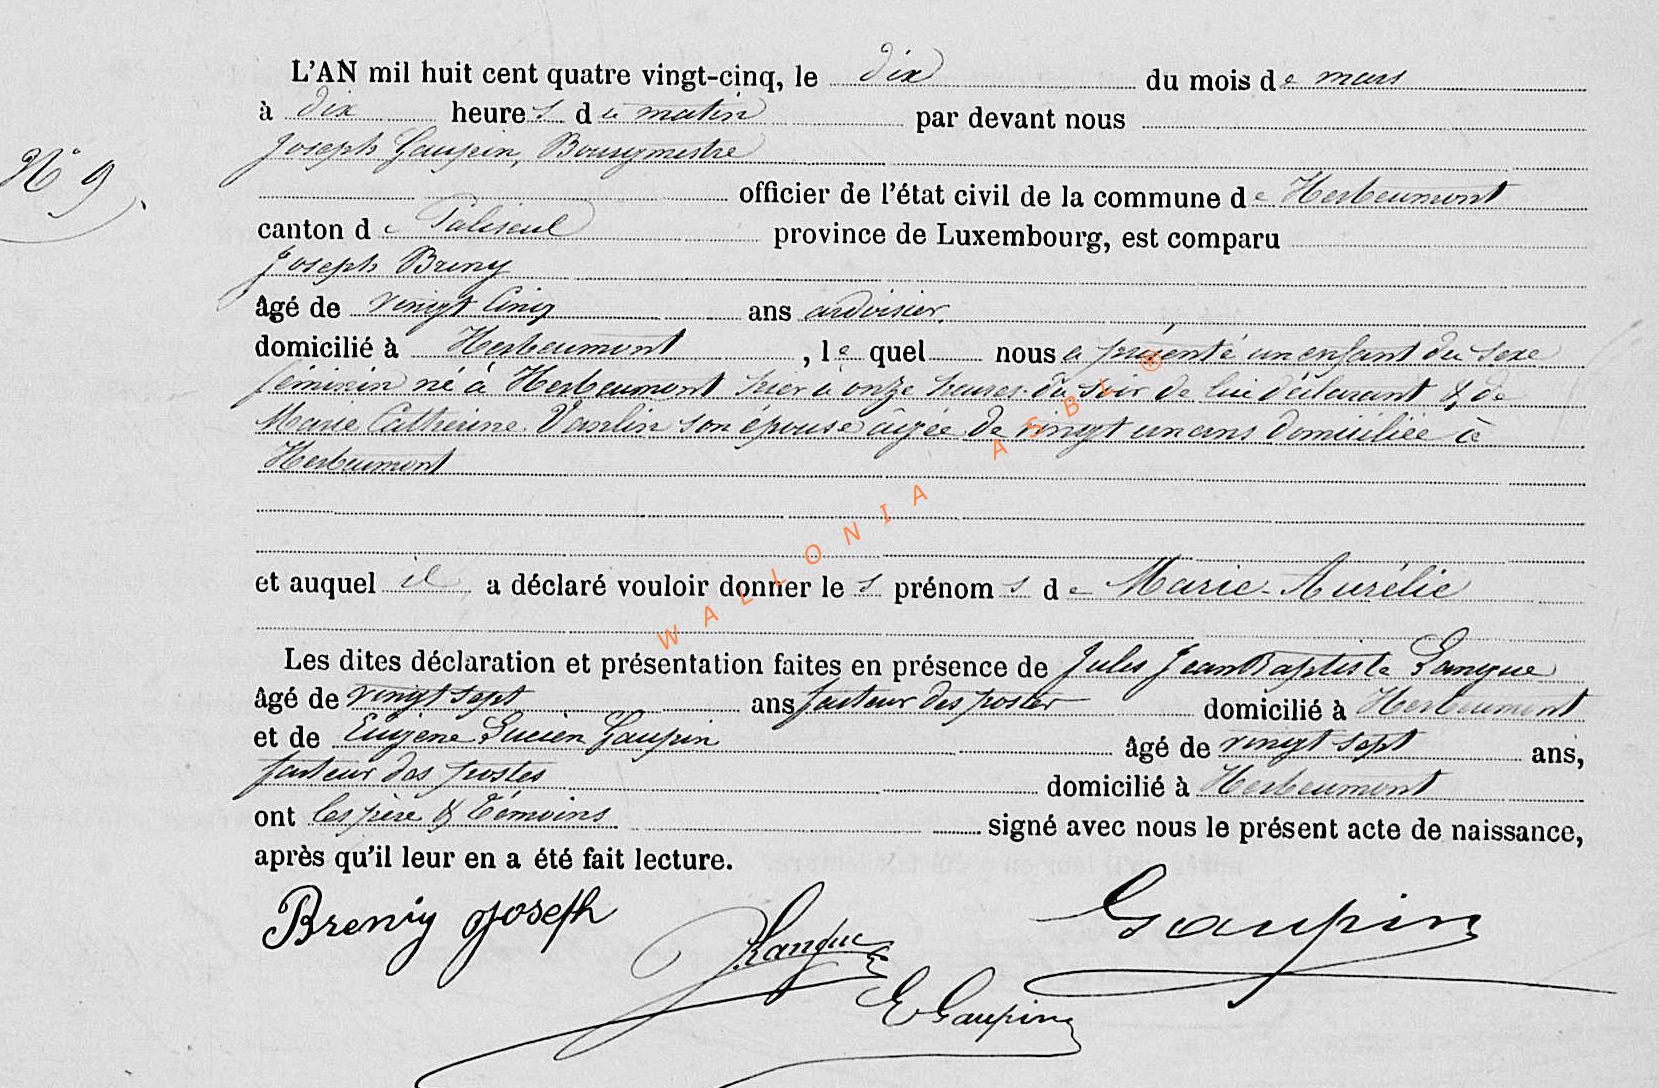 L'AN mil huit cent quatre vingt-cinq, le dix du mois de mars
à dix heures du matin par devant nous
Joseph Gaupin, Bourgmestre
N° 9.
officier de l'état civil de la commune de Herbeumont
canton de Paliseul province de Luxembourg, est comparu
Joseph Breny
âgé de vingt cinq ans ardoisier,
domicilié à Herbeumont, lequel nous a présenté un enfant du sexe
féminin né à Herbeumont hier à onze heures du soir de lui déclarant & de
Marie Catherine Vanlin son épouse âgée de vingt un ans domiciliée à
Herbeumont
et auquel il a déclaré vouloir donner les prénoms de Marie-Aurélie
Les dites déclaration et présentation faites en présence de Jules Jean Baptiste Langue
âgé de vingt sept ans facteur des postes domicilié à Herbeumont
et de Eugène Lucien Gaupin âgé de vingt sept ans,
facteur des postes domicilié à Herbeumont
ont les père & témoins signé avec nous le présent acte de naissance,
après qu'il leur en a été fait lecture.
Breny Joseph
JLangue
Gaupin
E Gaupin
WALLONIA ASBL ®